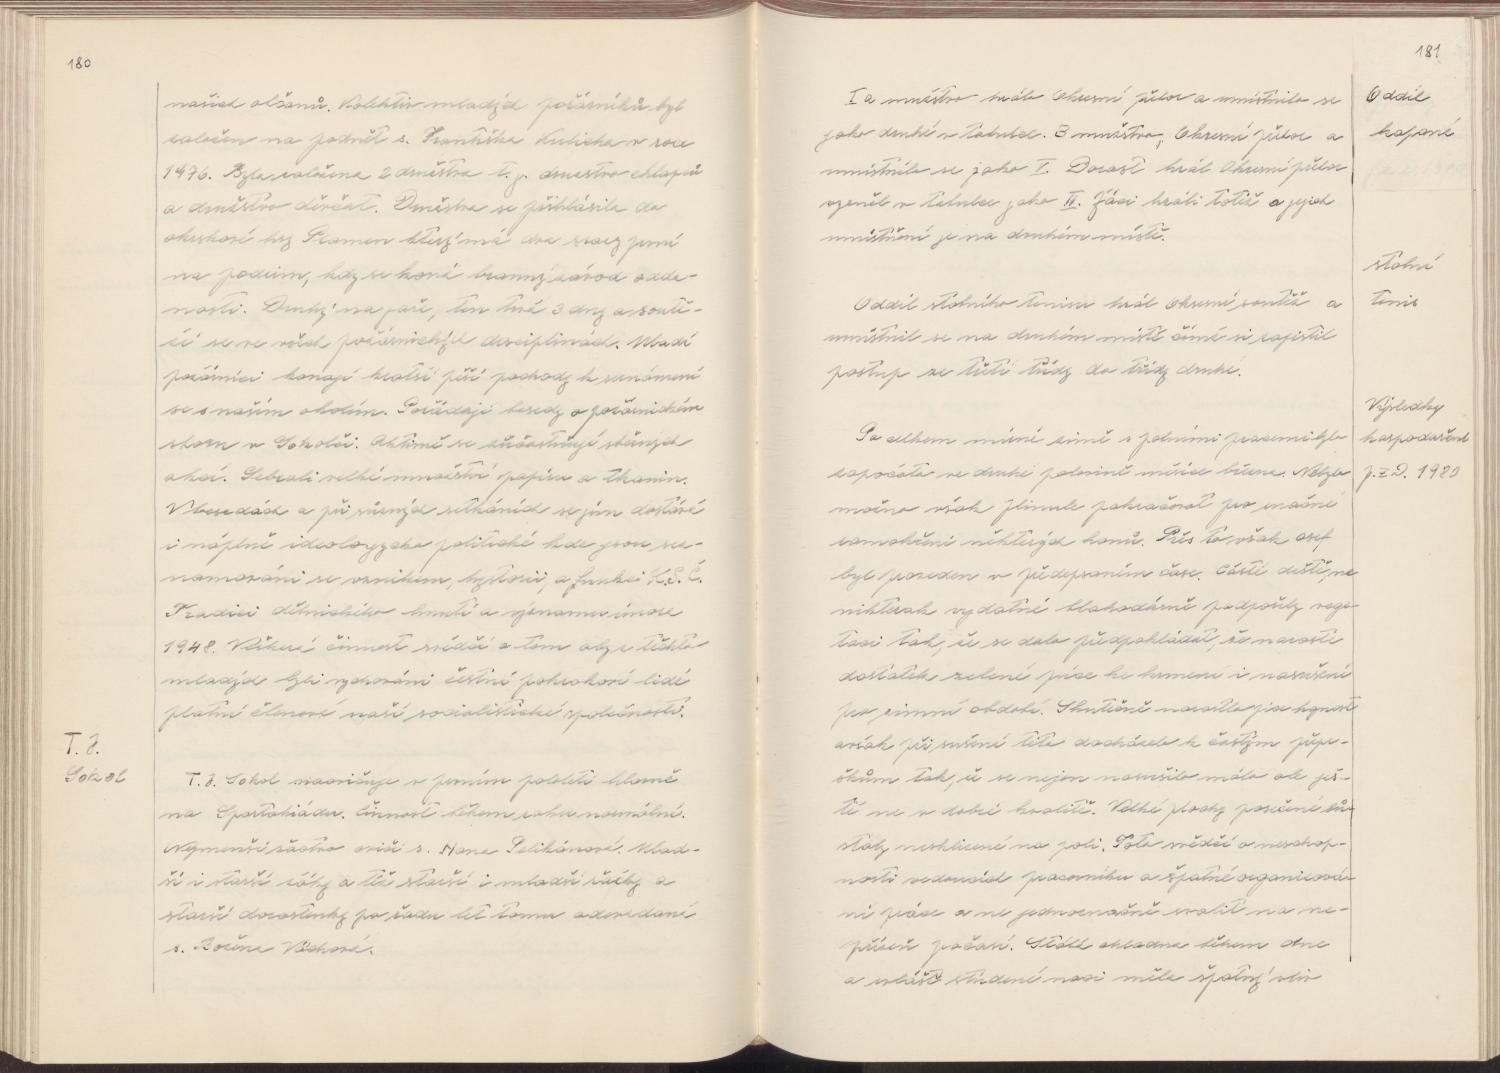 180
našich občanů. Kolektiv mladých požárníků byl
založen na podnět s. Františka Kulicha v roce
1976. Byla založena 2 družstva t.j. družstvo chlapců
a družstvo děvčat. Družstva se přihlásila do
okrskové hry Plamen který má dva srazy první
na podzim, kdy se koná branný závod zdat-
nosti. Druhý na jaře, ten trvá 3 dny a soutě-
ží se ve všech požárnických disciplinách. Mladí
požárníci konají kratší pěší pochody k seznámení
se s naším okolím. Pořádají besedy o požárnickém
sboru v Sokolči. Aktivně se zúčastňují sběrných
akcí. Sebrali velké množství papíru a tkanin.
V besedách a při různých setkáních se jim dostává
i náplně ideologicko politické kde jsou sez-
namováni se vznikem, hystorií, a funkcí K.S.Č.
Tradicí dělnického hnutí a významu února
1948. Veškerá činnost svědčí o tom aby z těchto
mladých byli vychováni čestní pokrokoví lidé
platní členové naší socialistické společnosti.
T.J.
Sokol
T.J. Sokol nacvičuje v prvním pololetí hlavně
na Spartakiádu. Činnost během roku normální.
Nejmenší žactvo cvičí s. Hana Pelikánová. Mlad-
ší i starší žáky a též starší i mladší žačky a
starší dorostenky po řadu let tomu odevzdaně
s. Božena Váchová.
181
Oddíl
kopané
I a mužstvo hrálo Okresní přebor a umístnilo se
jako druhé v tabulce. B mužstvo, Okresní přebor a
umístnilo se jako V. Dorost hrál Okresní přebor
vzešel v tabulce jako IV. Žáci hráli totéž a jejich
umístnění je na druhém místě.
stolní
tenis
Oddíl stolního tenisu hrál Okresní soutěž a
umístnil se na druhém místě čímž si zajistil
postup ze třetí třídy do třídy druhé.
Výsledky
hospodaření
J.Z.D. 1980
Po celkem mírné zimě s polními pracemi bylo
započato ve druhé polovině měsíce března. Nebylo
možno však plynule pokračovat pro značné
zamokření některých honů. Přes to však osef
byl proveden v předepsaném čase. Části deště, ne
nikterak vydatné blahodárně podpořily vege-
taci tak, že se dalo předpokládat, že naroste
dostatek zelené píce ke krmení i nasušení
pro zimní období. Skutečně narostlo píce hojnost
avšak při sušení této docházelo k častým přepr-
škám tak, že se nejen nasušilo málo ale ješ-
tě ne v dobré kvalitě. Velké plochy posečené zů-
stály nesklizené na poli. Toto svědčí o neschop-
nosti vedoucích pracovníku a špatné organizová-
ní práce a ne jednoznačně svalit na ne-
přízeň počasí. Stálé chladna během dne
a zvlášť studené noci měla špatný vliv